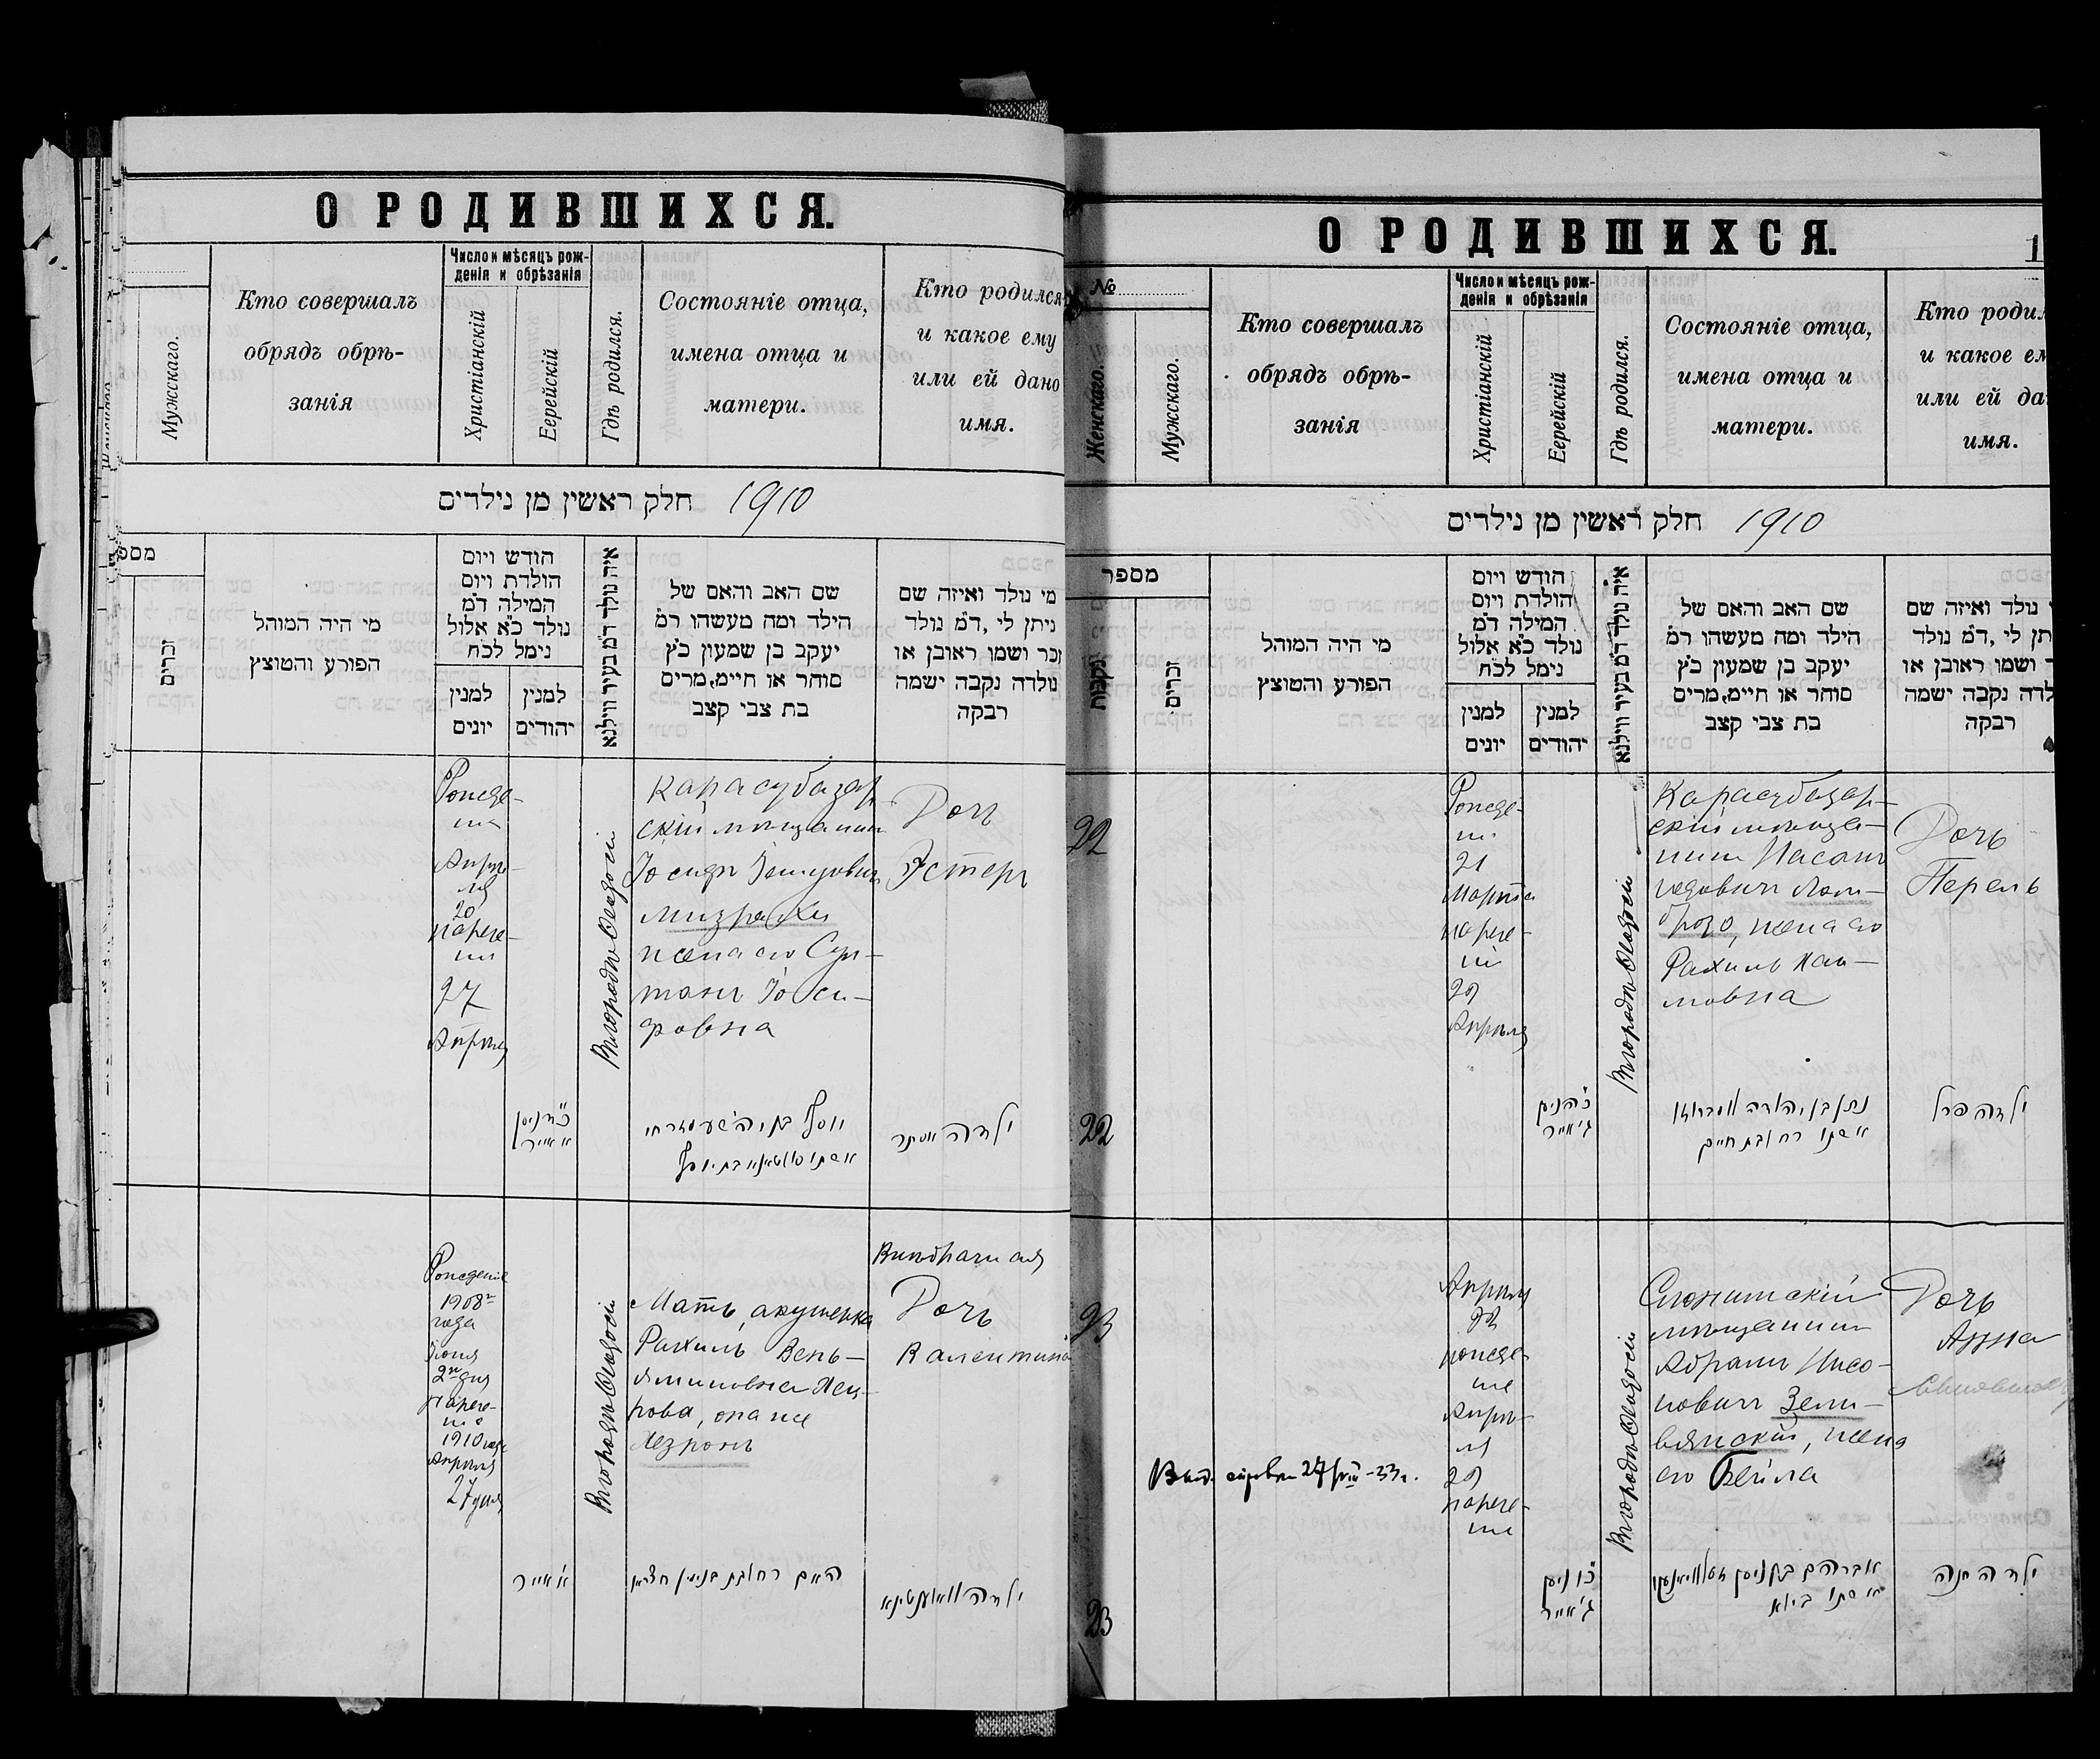 О РОДИВШИХСЯ.
Мужскаго.
Кто совершалъ
обрядъ обрѣ-
занія
Число и мѣсяцъ рож-
денія и обрѣзанія
Христіанскій
Еерейскій
Гдѣ родился.
Состояніе отца,
имена отца и
матери.
Кто родился
и какое ему
или ей дано
имя.
חלק ראשין מן נילדים 1910
מספ
זכרים
מי היה המוהל
הפורע והמוצץ
הודש ויום
הולדת ויום
המילה דמ
נולד כ"א אלול
נימל לכ"ח
למנין
יונים
למנין
יהודים
איה נולד דמ בעיר ווילנא
שם האב והאם של
הילד ומה מעשהו דמ
יעקב בן שמעון כ"ץ
סוחר או חיים, מרים
בת צבי קצב
מי נולד ואיזה שם
ניתן לי, דמ נולד
זכר ושמו ראובן או
נולדה נקבה ישמה
רבקה
Рожде-
ния
Апрѣ-
ля
20
нарече-
ния
27
Апрѣля
Въ городѣ Ѳеодосіи
Карасубазар
скій мѣщанинъ
Іосифъ
Мизрахи
жена его Сул-
танъ Іоси-
фовна
Дочь
Эстеръ
כ"ד ניסן
א אייר
יוסף בן יהושע מזרחי
אשתו סולטאנא בת יוסף
ילדה אסתר
Рожденіе
1908 г.
года
Іюня
2го дня
Нарече-
ніе
1910 года
Апрѣля
27 дня
Въ городѣ Ѳеодосіи
Мать, акушерка
Рахиль Вень-
яминовна Хац-
рова, она же
Хезронъ
Внѣбрачная
Дочь
Валентина
א אייר
האם רחל בת בנימין
ילדה וואלענטינא
О РОДИВШИХСЯ.
1
№
Женскаго.
Мужскаго.
Кто совершалъ
обрядъ обрѣ-
занія
Число и мѣсяцъ рож-
денія и обрѣзанія
Христіанскій
Еерейскій
Гдѣ родился.
Состояніе отца,
имена отца и
матери.
Кто родил
и какое ем
или ей да
имя.
חלק ראשין מן נילדים 1910
מספר
נקבות
זכרים
מי היה המוהל
הפורע והמוצץ
הודש ויום
הולדת ויום
המילה דמ
נולד כ"א אלול
נימל לכ"ח
למנין
יונים
למנין
יהודים
איה נולד דמ בעיר ווילנא
שם האב והאם של
הילד ומה מעשהו דמ
יעקב בן שמעון כ"ץ
סוחר או חיים, מרים
בת צבי קצב
נולד ואיזה שם
תן לי, דמ נולד
ר ושמו ראובן או
לדה נקבה ישמה
רבקה
22
Рожде-
ні
21
Марта
нарече-
ні
29
Апрѣля
Въ городѣ Ѳеодосіи
Карасубазар-
скій мѣща-
нинъ Насанъ
Лом-
брозо, жена его
Рахиль Хаи-
мовна
Дочь
Перель
22
כ"ה ניסן
ג אייר
נתן בן יהודה לומברוזו
אשתו רחל בת חיים
ילדה פרל
23
Апрѣля
22
рожде-
ніе
Апрѣ-
ля
29
нарече-
ніе
Въ городѣ Ѳеодосіи
Слонимскій
мѣщанинъ
Абрамъ Нисо-
новичъ Зель-
вянскій, жена
его Бейла
Дочь
Анна
Вид. справка 27/VIII-33 г.
23
ג אייר
אברהם בן ניסן זעלוויאנסקי
אשתו ביילא
ילדה חנה